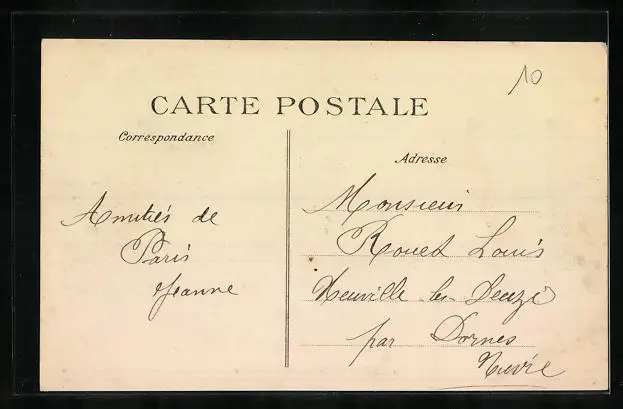 10
CARTE POSTALE
Correspondance
Adresse
Amitiés de
Paris
Jeanne
Monsieur
Rouet Louis
Neuville-les-Decize
par Dornes
Nièvre